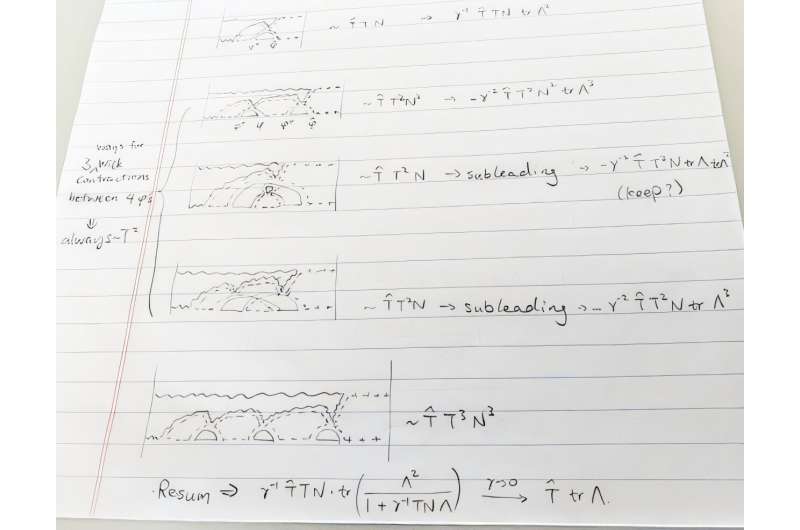 ~ T̂ T N → γ⁻¹ T̂ T N tr Λ²
φ⁺ φ
~ T̂ T² N² → -γ⁻² T̂ T² N² tr Λ³
φ⁺ φ φ⁺ φ
3 ways for
Wick
contractions
between 4 φs
⇓
always ~ T²
~ T̂ T² N → subleading → -γ⁻² T̂ T² N tr Λ tr Λ²
(keep?)
~ T̂ T² N → subleading → -- γ⁻² T̂ T² N tr Λ³
~ T̂ T³ N³
Resum ⇒ γ⁻¹ T̂ T N · tr ( Λ² / (1 + γ⁻¹ T N Λ) ) γ→0 → T̂ tr Λ.